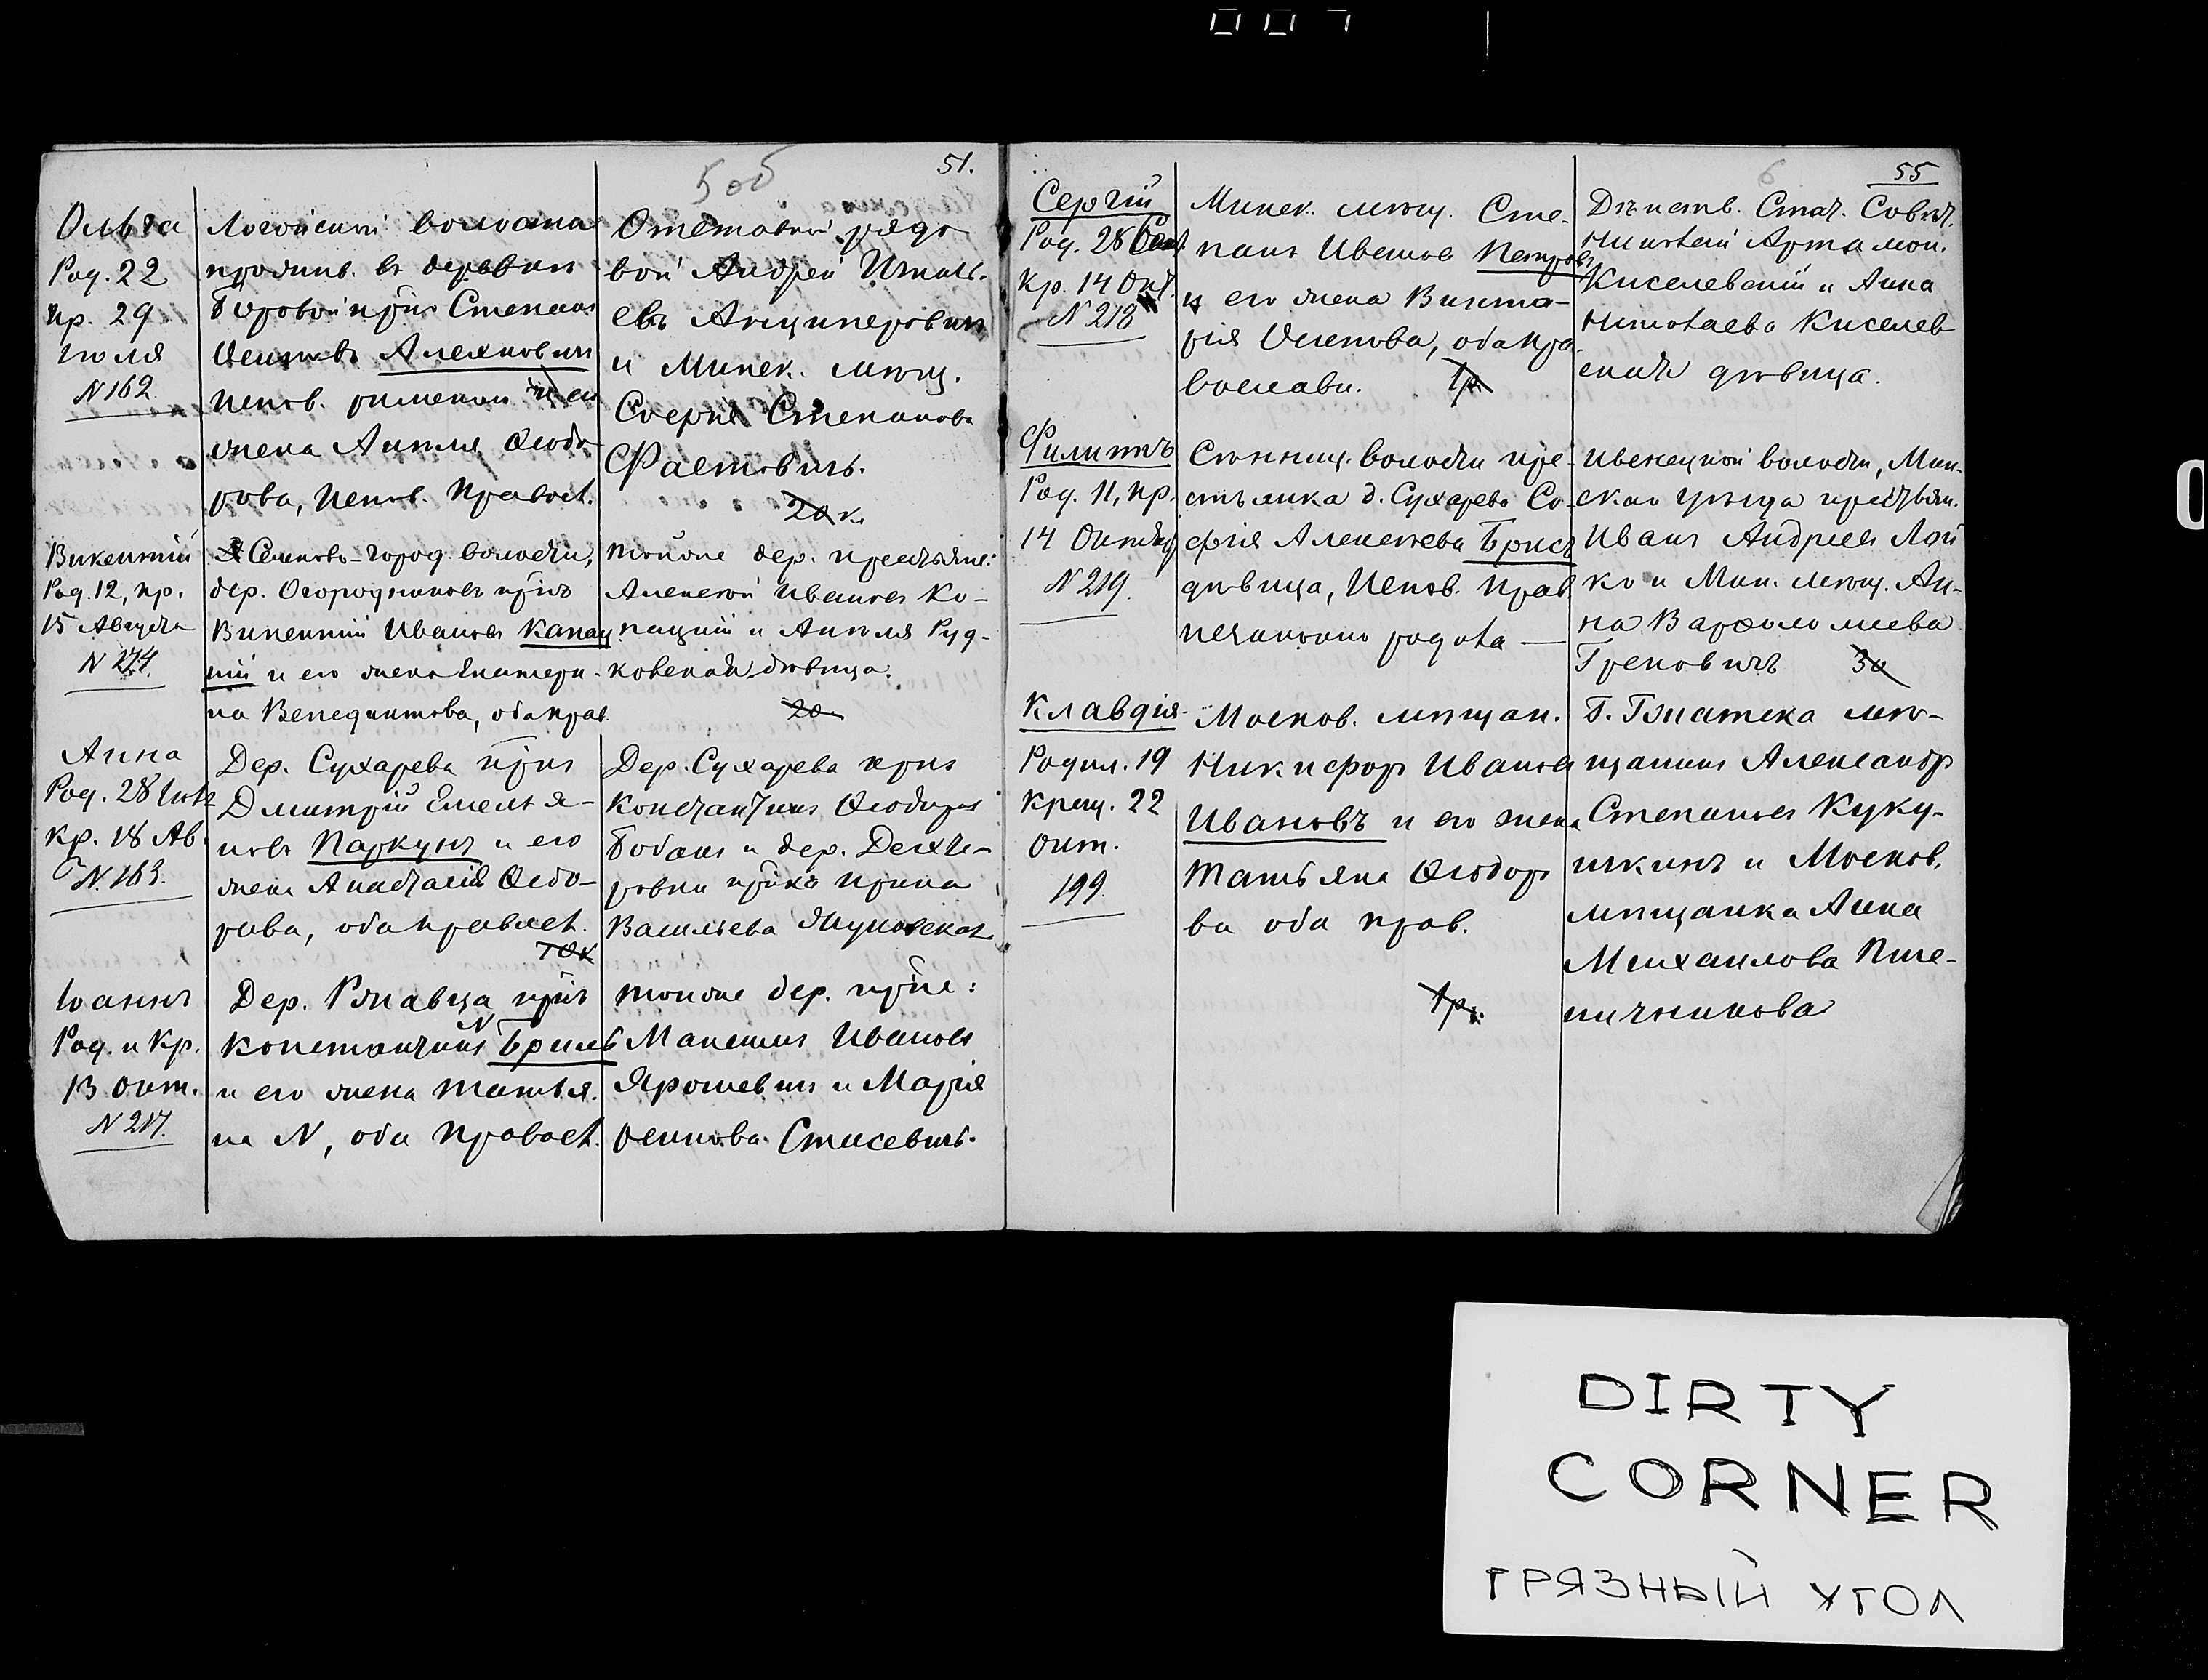 007
51.
5 об
Ольга
Род. 22
кр. 29
Іюля
N 162.
Логойской волости
прожив. въ деревни
Боровой крнъ Степанъ
Алехновичъ
исповъ. римскаго и его
жена Анеля Ѳеодо-
рова, исповъ. правосл.
Отставной рядо-
вой Андрей Игнать-
евъ Анциперовичъ
и Минск. мѣщ.
Софія Степанова
Фаетовичъ.
20 к.
Викентій
Род. 12, кр.
15 Августа
N 274.
Семково-город. волости,
дер. Огородниковъ крнъ
Викентій Ивановъ Капац
кій и его жена Екатери-
на Венедиктова, оба прав.
тойже дер. крестьяне:
Алексѣй Ивановъ Ко-
пацкій и Анеля Руд-
ковская дѣвица.
20
Анна
Род. 28 Іюля
кр. 18 Ав.
N. 163.
Дер. Сухарева крнъ
Дмитрій Емелья-
новъ Паркунъ и его
жена Анастасія Ѳедо-
рова, оба правосл.
70к
Дер. Сухарева крнъ
Константинъ Ѳеодоровъ
Бобанъ и дер. Дехте-
ровки крнка Ирина
Васильева Жуковская
Іоаннъ
Род. и Кр.
13 Окт.
N 217.
Дер. Ржавца крнъ
Константинъ N Бриль
и его жена Татья-
на N, оба правосл.
тойже дер. крне:
Максимъ Ивановъ
Ярошевичъ и Марія
Осипова Стасевичъ.
6
55
Сергій
Род. 28 Сент.
кр. 14 Окт.
N 218
Минск. мѣщ. Сте-
панъ Ивановъ Петровъ
и его жена Викто-
рія Осипова, оба пра-
вославн.
1р
Дѣйств. Стат. Совѣт.
Николай Артамон.
Киселевскій и Анна
Николаева Киселев-
ская дѣвица.
Филиппъ
Род. 11, кр.
14 Октябр
N 219.
Сѣнниц. волости кре-
стьянка д. Сухарево Со-
фія Алексѣева Брисъ
дѣвица, исповъ. прав
незаконно родила —
Ивенецкой волости, Мин-
скаго уѣзда крестьян.
Иванъ Андреевъ Лой
ко и Мин. мѣщ. Ан-
на Варфоломеева
Грековичъ 30
Клавдія
Родил. 19
Крещ. 22
Окт.
199.
Москов. мѣщан.
Никифоръ Ивановъ
Ивановъ и его жена
Татьяна Ѳеодоро
ва оба прав.
1р.
Г. Гжатска мѣ-
щанинъ Александръ
Степановъ Куку-
шкинъ и Москов.
мѣщанка Анна
Михаилова Пше-
ничникова
DIRTY
CORNER
ГРЯЗНЫЙ УГОЛ